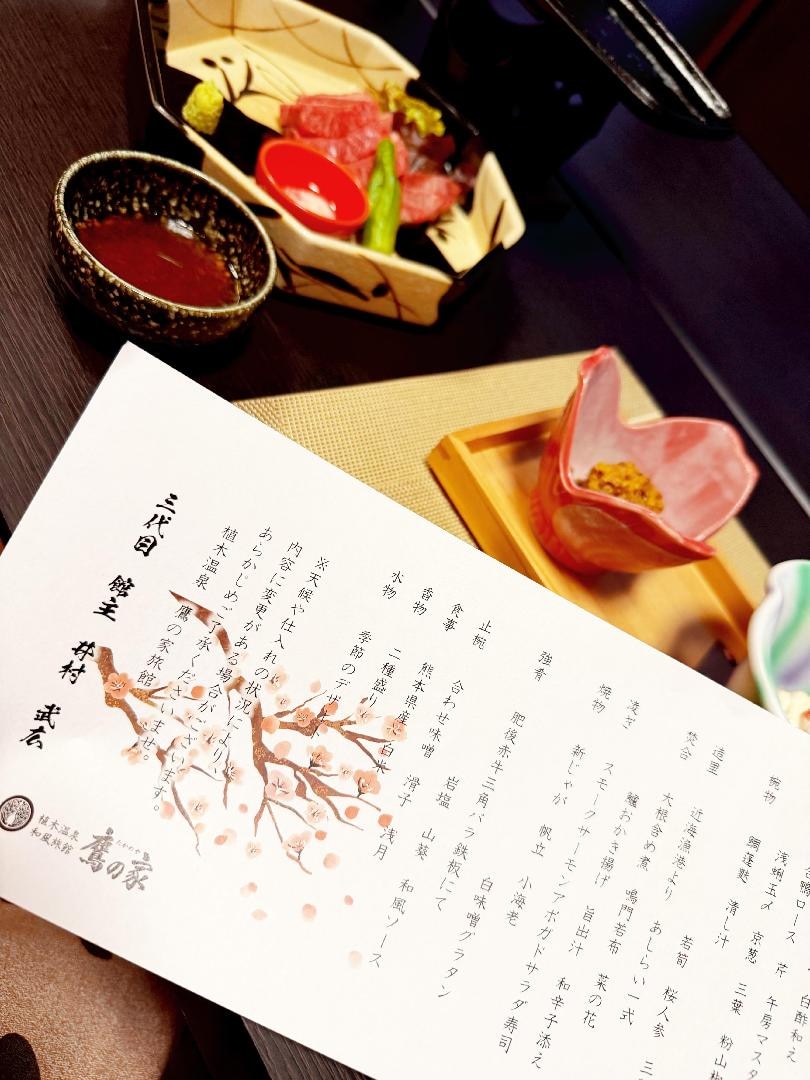 合鴨ロース 芹
白酢和え
椀物
浅蜊玉〆 京葱 三葉
鯛蓮麩 清し汁
造里
近海漁港より あしらい一式
焚合
若筍 桜人参
大根含め煮 鳴門若布 菜の花
凌ぎ
鱧おかき揚げ 旨出汁 和辛子添え
焼物
スモークサーモンアボガドサラダ寿司
新じゃが 帆立 小海老 白味噌グラタン
強肴
肥後赤牛三角バラ鉄板にて
岩塩 山葵 和風ソース
止椀 合わせ味噌 滑子 浅月
食事 熊本県産 白米
香物 二種盛り
水物 季節のデザート
※天候や仕入れの状況により、
内容に変更がある場合がございます。
あらかじめご了承くださいませ。
植木温泉 鷹の家旅館
三代目 館主 井村 武広
植木温泉
和風旅館
鷹の家
たかのや